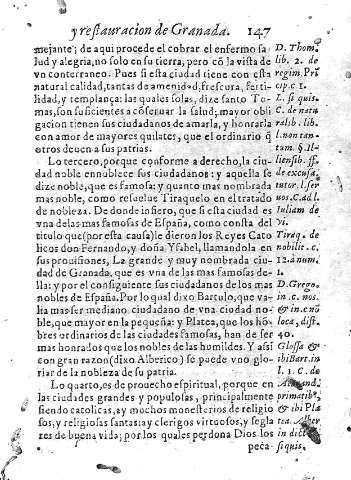 y restauracion de Granada. 147
mejante; de aqui procede el cobrar el enfermo sa
lud y alegria, no solo en su tierra, pero cō la vista de
vn conterraneo. Pues si esta ciudad tiene con esta
natural calidad, tantas de amenidad, frescura, ferti-
lidad, y templança: las quales solas, dize santo To-
mas, son suficientes a cōseruar la salud, mayor obli
gacion tienen sus ciudadanos de amarla, y honrarla
con amor de mayores quilates, que el ordinario q̄
otros deuen a sus patrias.
Lo tercero, porque conforme a derecho, la ciu-
dad noble ennoblece sus ciudadanos: y aquella se
dize noble, que es famosa: y quanto mas nombrada
mas noble, como resuelue Tiraquelo en el tratado
de nobleza. De donde infiero, que si esta ciudad es
vna de las mas famosas de España, como consta del
titulo que (por esta causa) le dieron los Reyes Cato
licos don Fernando, y doña Ysabel, llamandola en
sus prouisiones, La grande y muy nombrada ciu-
dad de Granada, que es vna de las mas famosas de-
lla: y por el consiguiente sus ciudadanos de los mas
nobles de España. Por lo qual dixo Bartulo, que va
lia mas ser mediano ciudadano de vna ciudad no-
ble, que mayor en la pequeña: y Platea, que los hō-
bres ordinarios de las ciudades famosas, han de ser
mas honrados que los nobles de las humildes. Y assi
con gran razon (dixo Alberico) se puede vno glo-
riar de la nobleza de su patria.
Lo quarto, es de prouecho espiritual, porque en
las ciudades grandes y populosas, principalmente
siendo catolicas, ay muchos monesterios de religio
sos, y religiosas santas; a clerigos virtuosos, y segla
res de buena vida; por los quales perdona Dios los
peca
D. Thom.
lib. 2. de
regim. Pri
cip. c. 1.
L. si quis.
C. de natu
ralib. lib.
l. non tan-
tum. §. Il-
liensib. ff.
de excusa.
tutor. l. ser
nos. C. ad l.
Iuliam de
vi.
Tiraq. de
nobilit. c.
12. a num.
1.
D. Grego.
in c. nos.
& in c. nū
loca, dist.
40.
Glossa &
ibi Bart. in
l. 1. C. de
primatib.
& ibi Pla
tea. Alber
in dict
si quis.